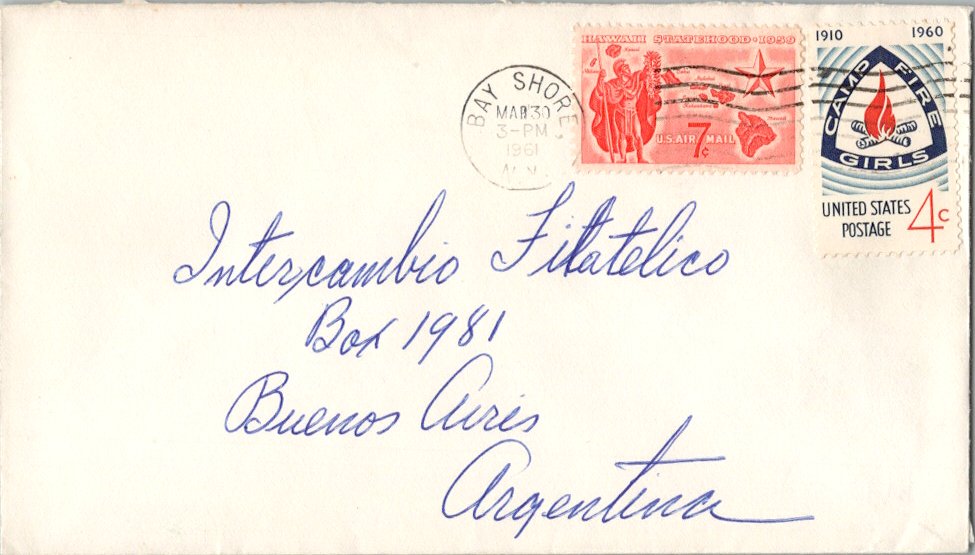 HAWAII STATEHOOD · 1959
U.S. AIR MAIL
7¢
1910 1960
CAMP FIRE GIRLS
UNITED STATES
POSTAGE
4c
BAY SHORE,
MAR 30
3-PM
1961
N.Y.
Intercambio Filatelico
Box 1981
Buenos Aires
Argentina